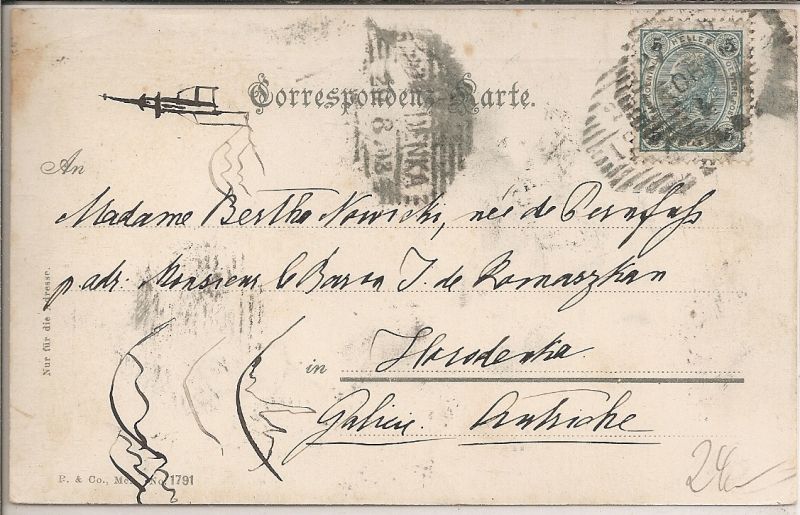 5 HELLER 5
DENKA
8 03
Correspondenz-Karte.
An
Madame Bertha Nowicki, née de Pernfuss
p. adr. Monsieur le Baron J. de Romaszkan
in Horodenka
Galicie. Autriche
Nur für die Adresse.
P. & Co., No. 1791
24